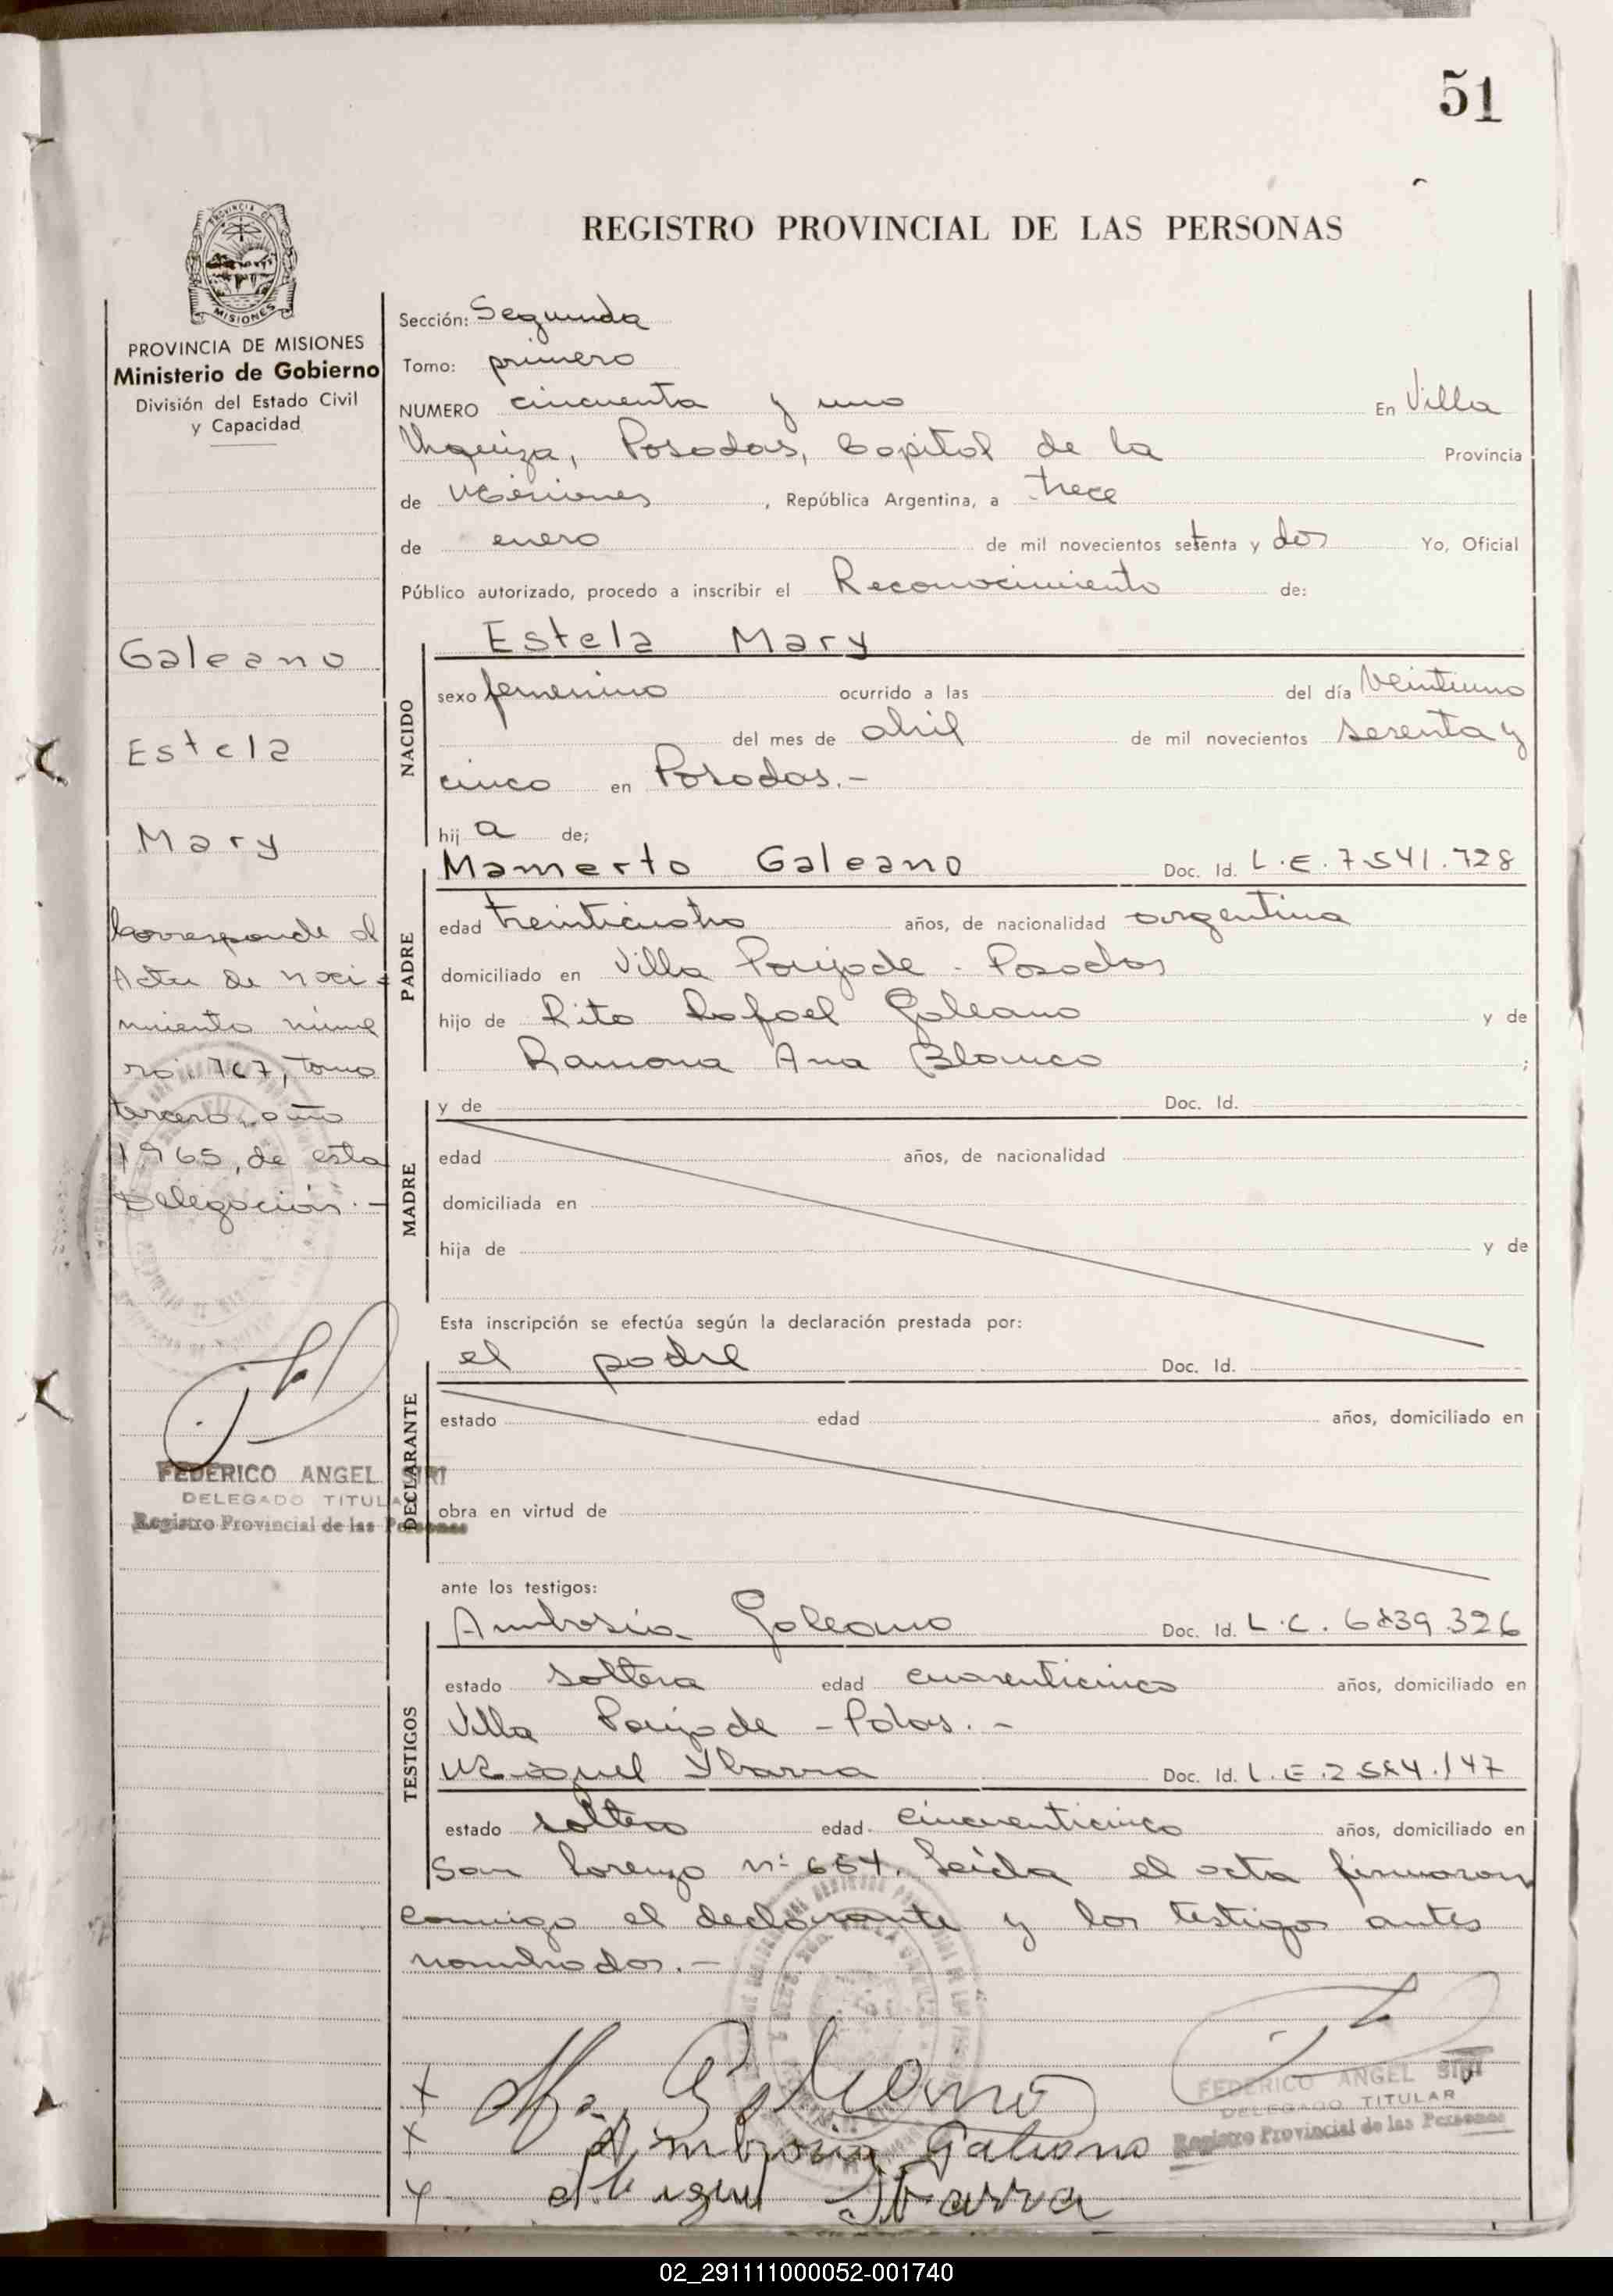 51
REGISTRO PROVINCIAL DE LAS PERSONAS
PROVINCIA DE
MISIONES
PROVINCIA DE MISIONES
Ministerio de Gobierno
División del Estado Civil
y Capacidad
Galeano
Estela
Mary
Corresponde al
Acta de naci-
miento núme
ro 767, tomo
tercero, año
1965, de esta
Delegación.-
FEDERICO ANGEL SIRI
DELEGADO TITULAR
Registro Provincial de las Personas
Sección: Segunda
Tomo: primero
NUMERO cincuenta y uno En Villa
Urquiza, Posadas, Capital de la Provincia
de Misiones, República Argentina, a trece
de enero de mil novecientos setenta y dos Yo, Oficial
Público autorizado, procedo a inscribir el Reconocimiento de:
NACIDO
Estela Mary
sexo femenino ocurrido a las del día veintiuno
del mes de abril de mil novecientos sesenta y
cinco en Posadas.-
hij a de;
PADRE
Mamerto Galeano Doc. Id. L.E. 7.541.728
edad treinticuatro años, de nacionalidad argentina
domiciliado en Villa Poujade - Posadas
hijo de Rito Rafael Galeano y de
Ramona Ana Blanco ;
MADRE
y de Doc. Id.
edad años, de nacionalidad
domiciliada en
hija de y de
Esta inscripción se efectúa según la declaración prestada por:
DECLARANTE
el padre Doc. Id.
estado edad años, domiciliado en
obra en virtud de
ante los testigos:
TESTIGOS
Ambrosia Galeano Doc. Id. L.C. 6.839.326
estado soltera edad cuarenticinco años, domiciliado en
Villa Poujade - Pdas.-
Miguel Ybarra Doc. Id. L.E. 2.584.147
estado soltero edad cincuenticinco años, domiciliado en
San Lorenzo nº 654. Leída el acta firmaron
conmigo el declarante y los testigos antes
nombrados.-
Galeano
Ambrosia Galeano
Miguel Ibarra
FEDERICO ANGEL SIRI
DELEGADO TITULAR
Registro Provincial de las Personas
02_291111000052-001740